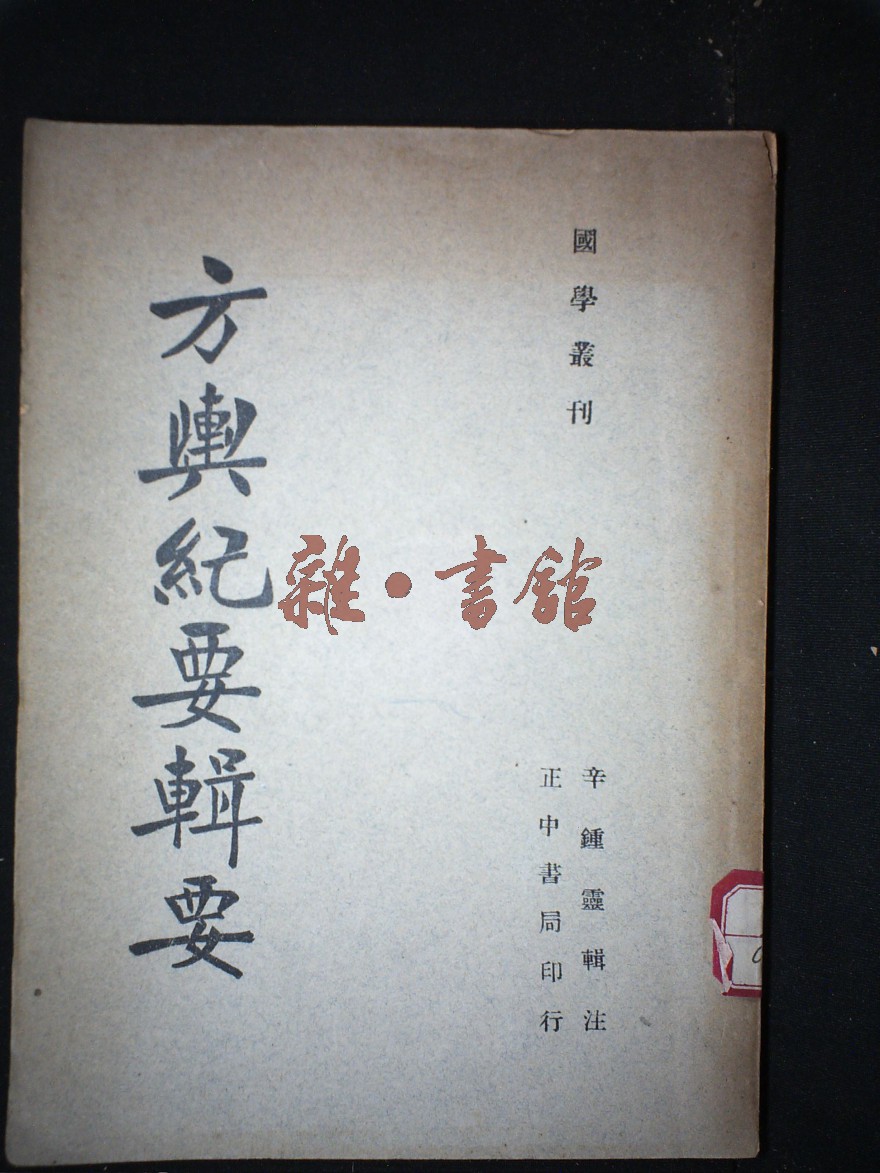 國學叢刊
辛鍾靈輯注
正中書局印行
方輿紀要輯要
雜·書館